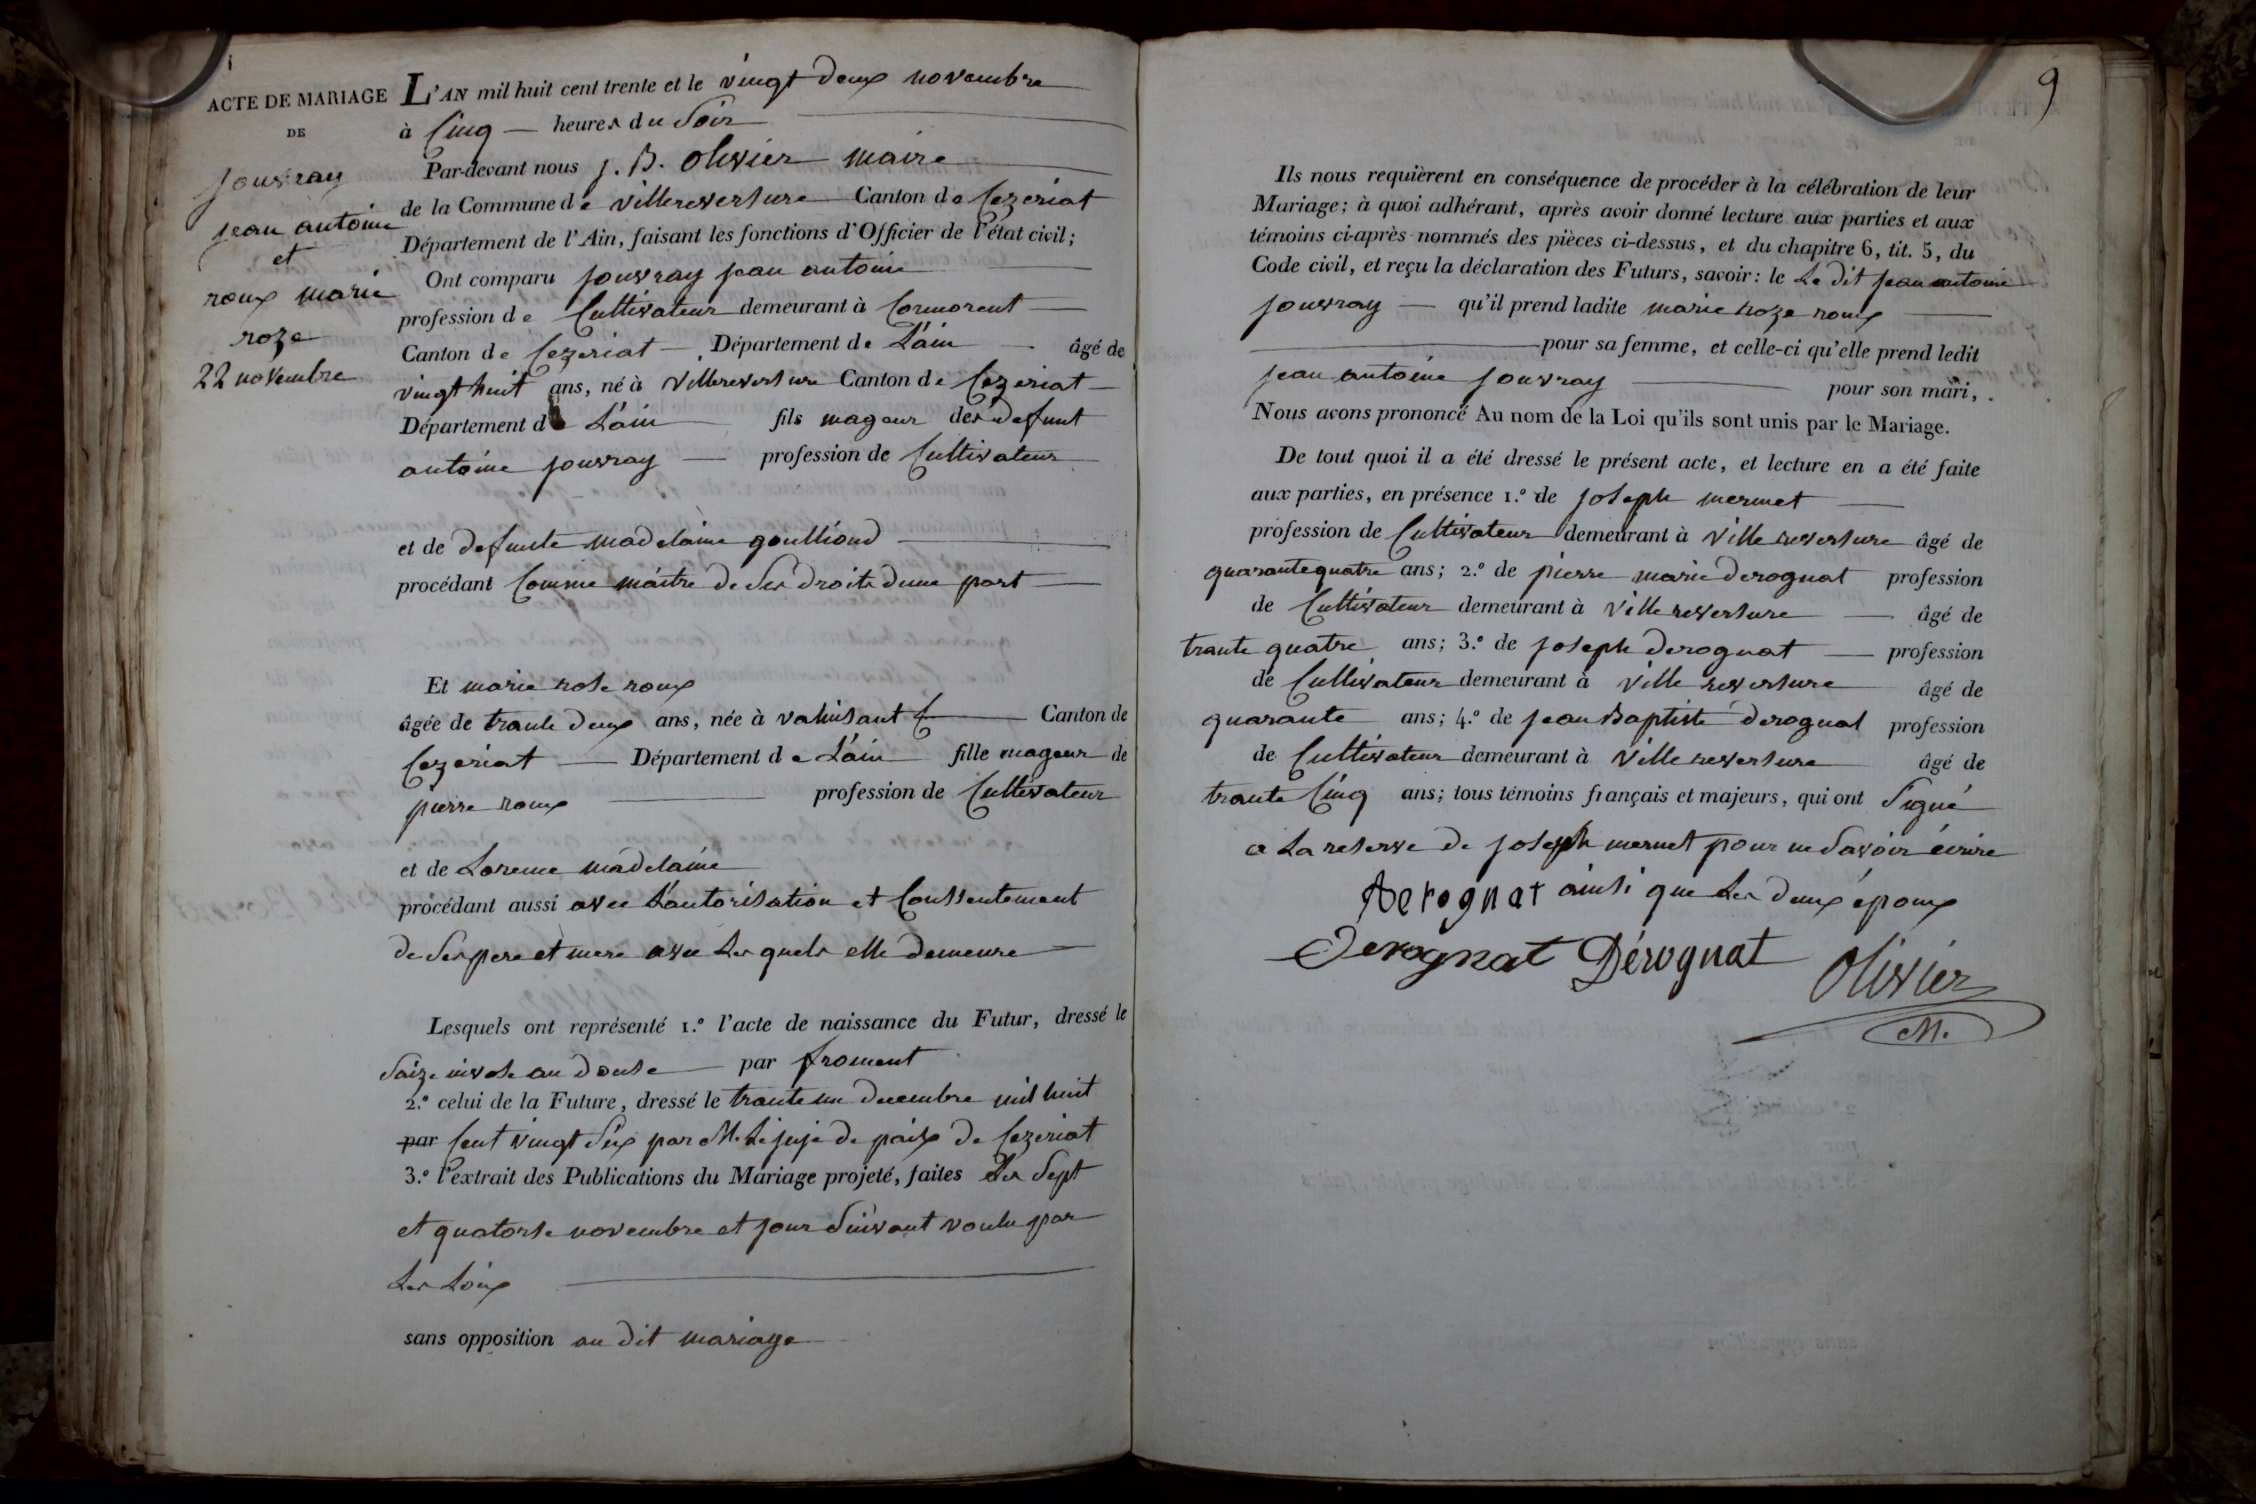 ACTE DE MARIAGE
DE
jouvray
jean antoine
et
roux marie
roze
22 novembre
L'AN mil huit cent trente et le vingt deux novembre
à Cinq heures du Soir
Par-devant nous j. B. Olivier maire
de la Commune de villereversure Canton de Cezeriat
Département de l'Ain, faisant les fonctions d'Officier de l'état civil;
Ont comparu jouvray jean antoine
profession de Cultivateur demeurant à Cormorent
Canton de Cezeriat Département de L'ain âgé de
vingt huit ans, né à villereversure Canton de Cezeriat
Département de L'ain fils mageur des defunt
antoine jouvray profession de Cultivateur
et de defunte madelaine goulliond
procédant Comme maitre de Ses droits dune part
Et marie rose roux
âgée de trante deux ans, née à valuisant Canton de
Cezeriat Département de L'ain fille mageur de
pierre roux profession de Cultivateur
et de Lorence madelaine
procédant aussi avec L'autorisation et Consentement
de Ses pere et mere avec Les quels elle demeure
Lesquels ont représenté 1.º l'acte de naissance du Futur, dressé le
Saize nivose an douse par froment
2.º celui de la Future, dressé le trante un decembre mil huit
par Cent vingt Six par M. Le juje de paix de Cezeriat
3.º l'extrait des Publications du Mariage projeté, faites Les Sept
et quatorse novembre et jour Suivant voulu par
Les Loix
sans opposition au dit mariage
9
Ils nous requièrent en conséquence de procéder à la célébration de leur
Mariage; à quoi adhérant, après avoir donné lecture aux parties et aux
témoins ci-après nommés des pièces ci-dessus, et du chapitre 6, tit. 5, du
Code civil, et reçu la déclaration des Futurs, savoir: le Le dit jean antoine
jouvray qu'il prend ladite marie roze roux
pour sa femme, et celle-ci qu'elle prend ledit
jean antoine jouvray pour son mari,
Nous avons prononcé Au nom de la Loi qu'ils sont unis par le Mariage.
De tout quoi il a été dressé le présent acte, et lecture en a été faite
aux parties, en présence 1.º de joseph mermet
profession de Cultivateur demeurant à Ville reversure âgé de
quarante quatre ans; 2.º de pierre marie derognat profession
de Cultivateur demeurant à Ville reversure âgé de
trante quatre ans; 3.º de joseph derognat profession
de Cultivateur demeurant à Ville reversure âgé de
quarante ans; 4.º de jean Baptiste derognat profession
de Cultivateur demeurant à Ville reversure âgé de
trante Cinq ans; tous témoins français et majeurs, qui ont Signé
a La reserve de joseph mermet pour ne Savoir écrire
Derognat ainsi que Les deux époux
Derognat Dérognat Olivier
M.